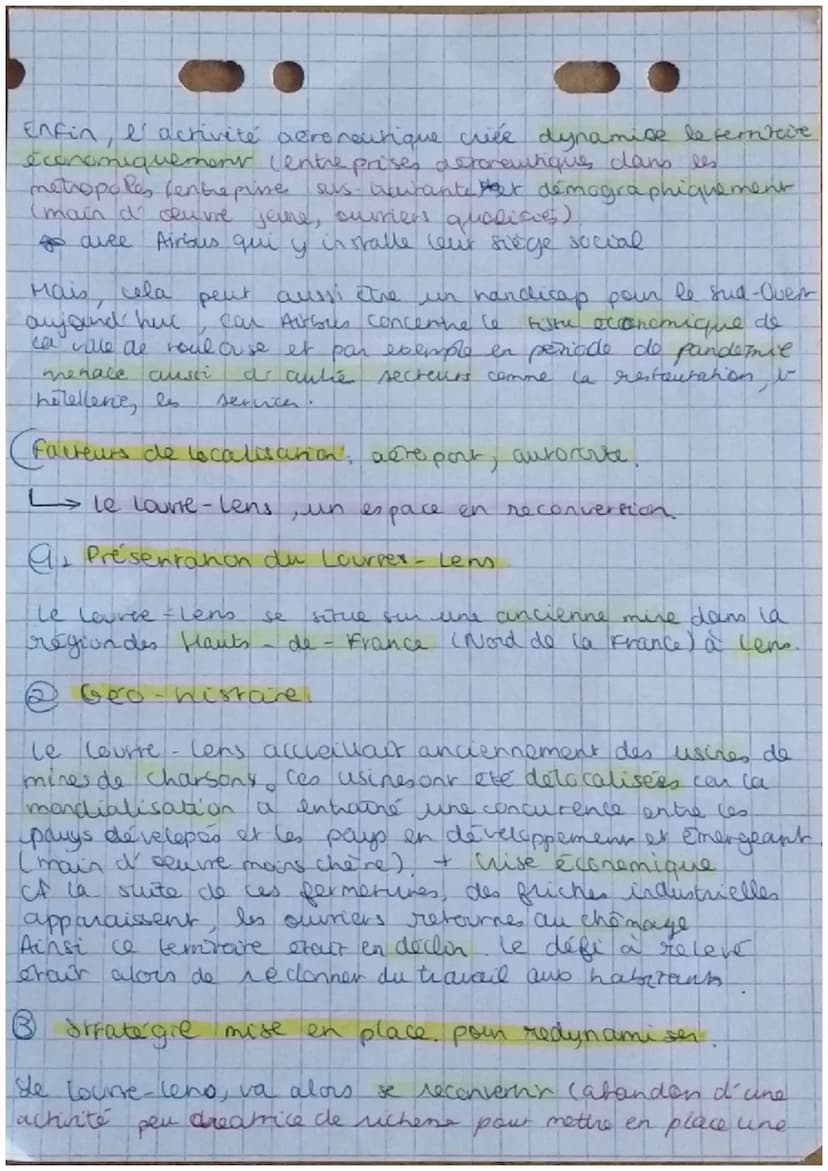 Enfin, l'activité aéronautique créé dynamise le territoire
économiquement (entreprises aéronautiques dans les
métropoles (entreprise sus-traitante et démographiquement
(main d'œuvre jeune, ouvriers qualifiés)
avec Airbus qui y installe leur siège social
Mais, cela peut aussi être un handicap pour le Sud-Ouest
aujourd'hui, car Airbus concentre le tissu économique de
la ville de Toulouse et par exemple en période de pandémie
menace aussi d'autre secteurs comme la restauration, l'
hôtellerie, les services.
(Facteurs de localisation : aéroport, autoroute.
↳ Le Louvre-Lens, un espace en reconversion
1. Présentation du Louvres-Lens
Le Louvre-Lens se situe sur une ancienne mine dans la
région des Hauts-de-France (Nord de la France) à Lens.
② Géo-histoire
Le Louvre-Lens accueillait anciennement des usines de
mines de charbons. Ces usines ont été délocalisées car la
mondialisation a entraîné une concurence entre les
pays dévelopés et les pays en développement et émergeant
(main d'œuvre moins chère) + crise économique
A la suite de ces fermetures, des friches industrielles
apparaissent, les ouvriers retournes au chômage
Ainsi ce territoire était en déclin. Le défi à relevé
était alors de redonner du travail aux habitants.
③ Stratégie mise en place pour redynamiser.
Le Louvre-Lens, va alors se reconvertir (abandon d'une
activité peu créatrice de richesse pour mettre en place une